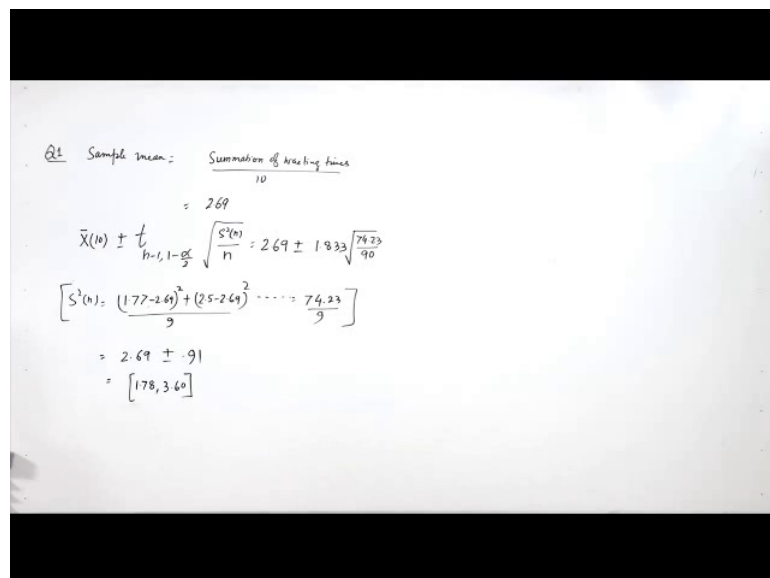 Q1 Sample mean = Summation of waiting times / 10
= 2.69
X̄(10) ± t n-1, 1-α/2 √(S²(n)/n) = 2.69 ± 1.833 √(74.23/90)
[S²(n) = ((1.77-2.69)² + (2.5-2.69)² ...../9 = 74.23/9]
= 2.69 ± .91
= [1.78, 3.60]